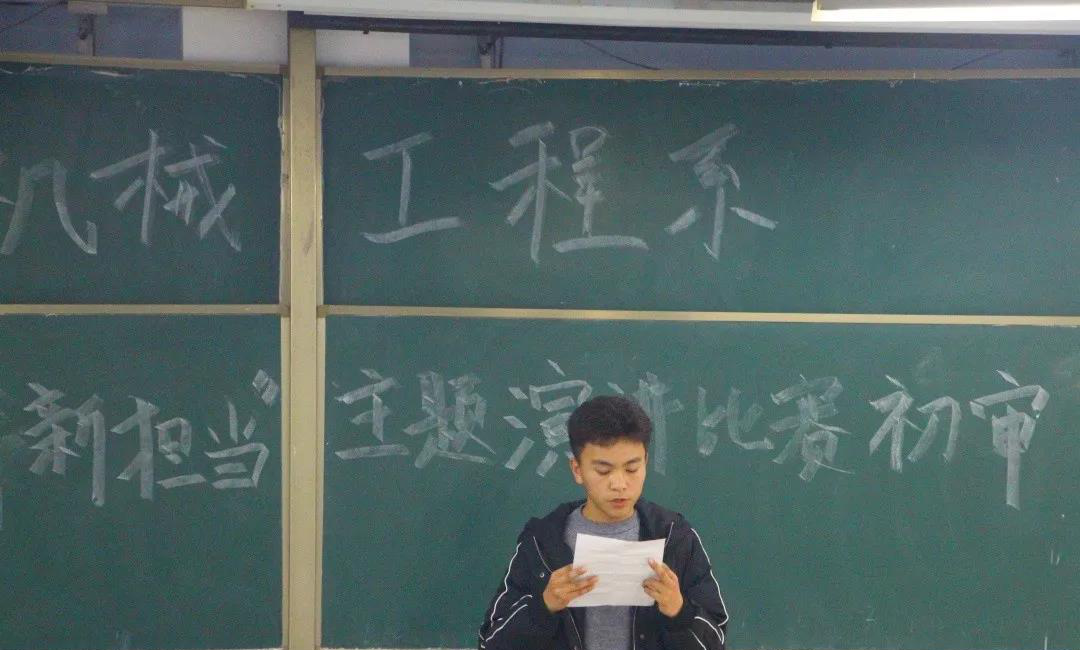 机械工程系
新担当”主题演讲比赛初审